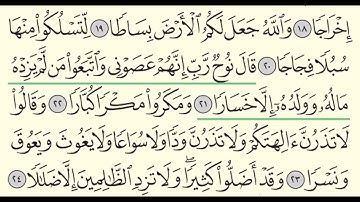 إِخْرَاجًا ١٨ وَٱللَّهُ جَعَلَ لَكُمُ ٱلْأَرْضَ بِسَاطًا ١٩ لِّتَسْلُكُوا۟ مِنْهَا
سُبُلًا فِجَاجًا ٢٠ قَالَ نُوحٌ رَّبِّ إِنَّهُمْ عَصَوْنِى وَٱتَّبَعُوا۟ مَن لَّمْ يَزِدْهُ
مَالُهُۥ وَوَلَدُهُۥٓ إِلَّا خَسَارًا ٢١ وَمَكَرُوا۟ مَكْرًا كُبَّارًا ٢٢ وَقَالُوا۟
لَا تَذَرُنَّ ءَالِهَتَكُمْ وَلَا تَذَرُنَّ وَدًّا وَلَا سُوَاعًا وَلَا يَغُوثَ وَيَعُوقَ
وَنَسْرًا ٢٣ وَقَدْ أَضَلُّوا۟ كَثِيرًا ۖ وَلَا تَزِدِ ٱلظَّٰلِمِينَ إِلَّا ضَلَٰلًا ٢٤